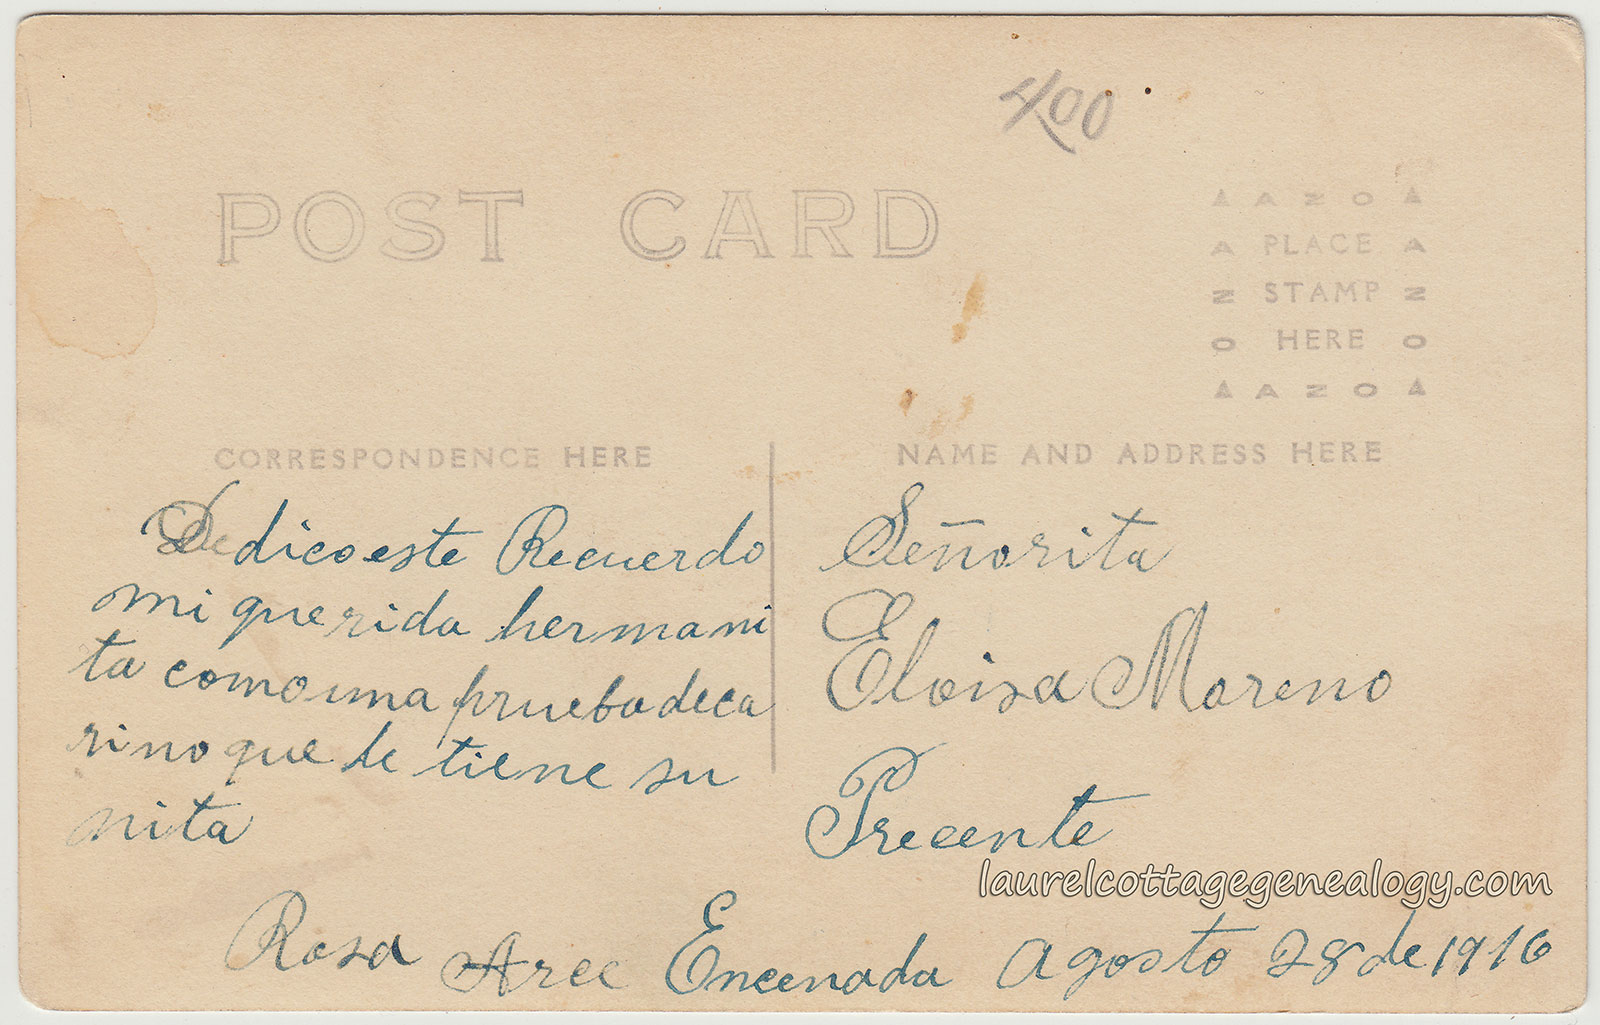 400
POST CARD
AZO
PLACE
STAMP
HERE
AZO
CORRESPONDENCE HERE
NAME AND ADDRESS HERE
Dedico este Recuerdo
mi querida hermani
ta como una prueba de ca
rino que le tiene su
nita
Señorita
Eloisa Moreno
Precente
laurelcottagegenealogy.com
Rosa Arce Encenada Agosto 28 de 1916